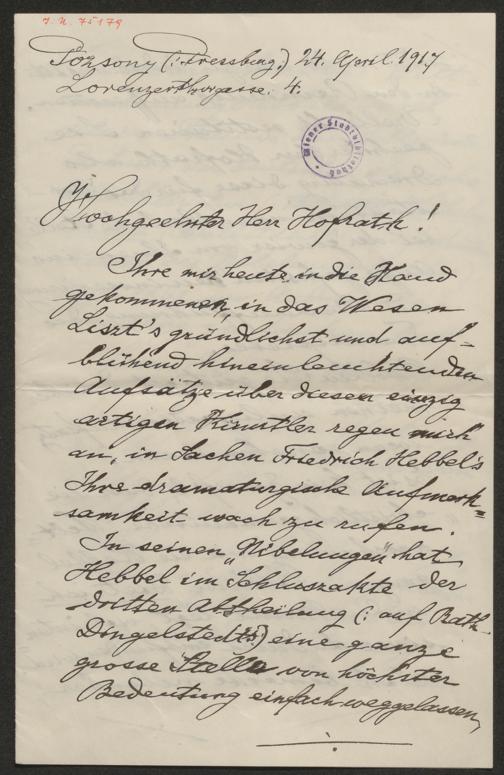 J. N. 75179
Pozsony (: Pressburg:) 24. April 1917
Lorenzerthorgasse: 4.
Wiener Stadtbibliothek
Hochgeehrter Herr Hofrath!
Ihre mir heute in die Hand
gekommenen, in das Wesen
Liszt's gründlichst und auf-
blühend hineinleuchtenden
Aufsätze über diesen einzig
artigen Künstler regen mich
an, in Sachen Friedrich Hebbel's
Ihre dramaturgische Aufmerk=
samkeit wach zu rufen.
In seinen „Nibelungen" hat
Hebbel im Schluszakte der
dritten Abtheilung (: auf Rath
Dingelstedt's:) eine ganze
grosse Stelle von höchster
Bedeutung einfach weggelassen,